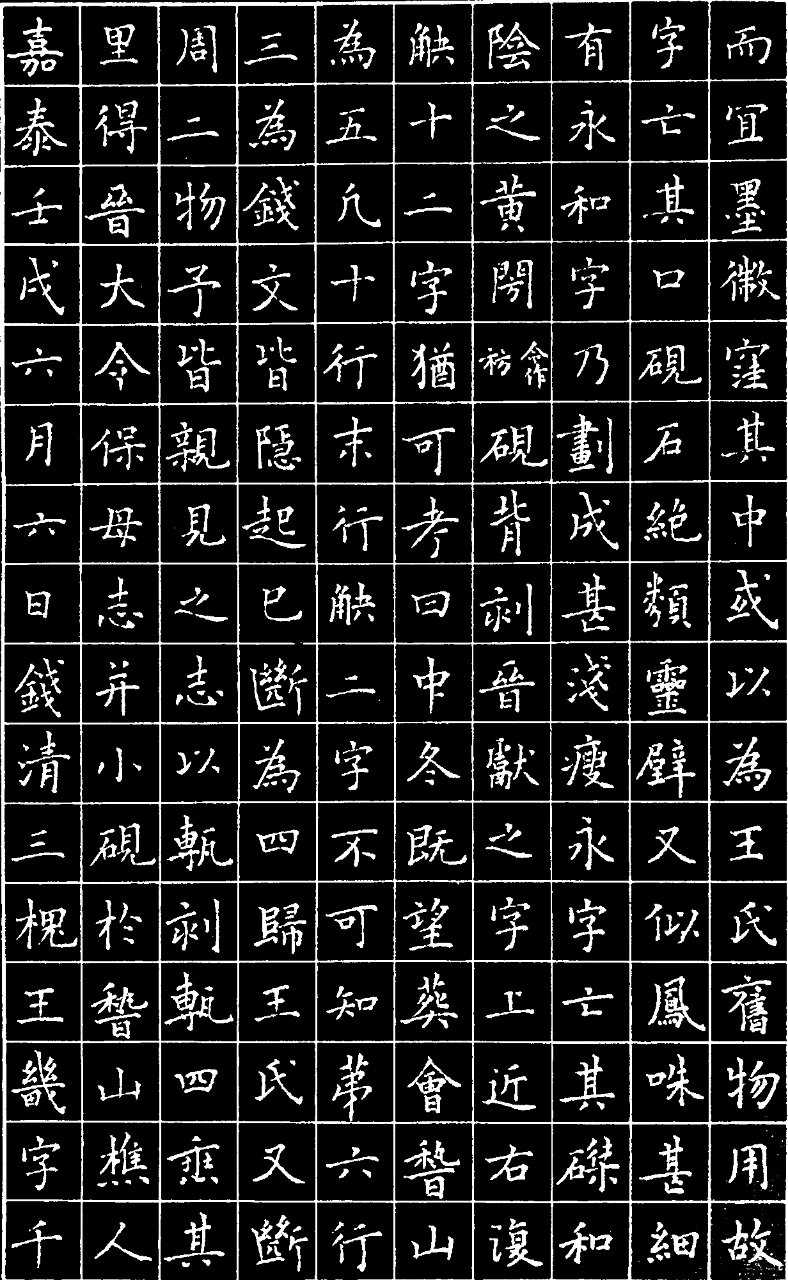 嘉泰壬戌六月六日錢清三槐王畿字千
里得晉大令保母志并小硯於稽山樵人
周二物予皆親見之志以甎刻甎四垂其
三為錢文皆隱起已斷為四歸王氏又斷
為五凡十行末行觖二字不可知第六行
觖十二字猶可考曰中冬既望葬會稽山
陰之黃閍合作祊硯背刻晉獻之字上近右復
有永和字乃劃成甚淺瘦永字亡其磔和
字亡其口硯石絕類靈壁又似鳳咮甚細
而宜墨微窪其中或以為王氏舊物用故